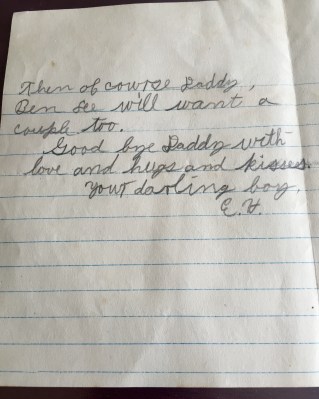 Then of course Daddy,
Ben See will want a
couple too.
Good bye Daddy with
love and hugs and kisses.
Your darling boy,
E. H.